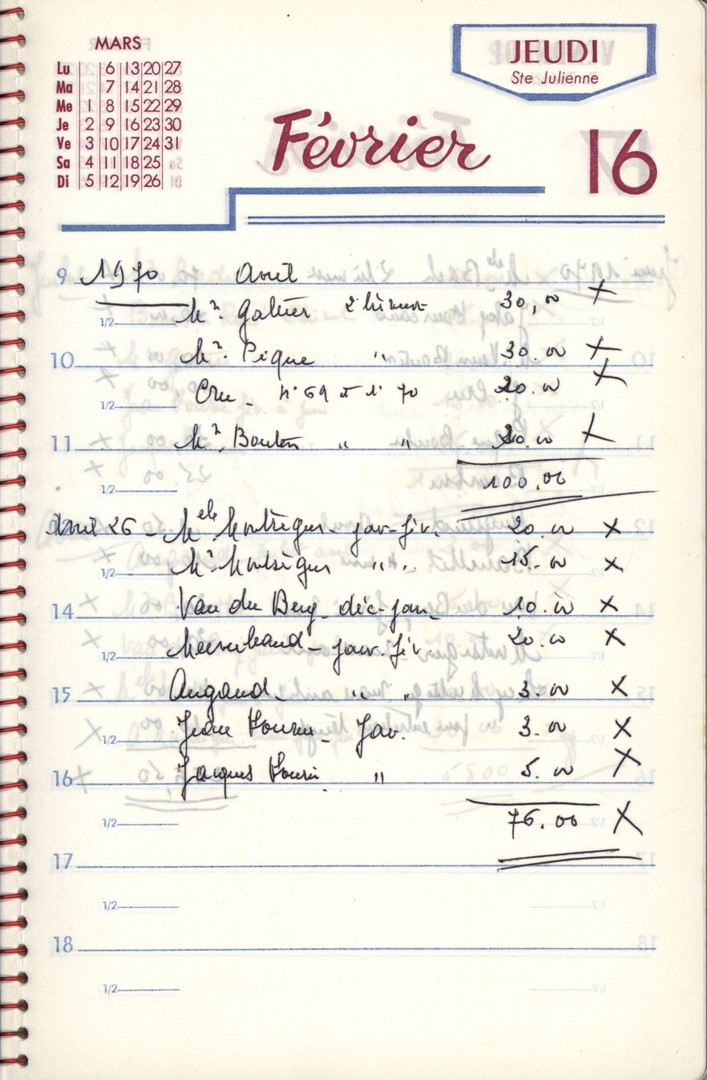 MARS
Lu 6 13 20 27
Ma 7 14 21 28
Me 1 8 15 22 29
Je 2 9 16 23 30
Ve 3 10 17 24 31
Sa 4 11 18 25
Di 5 12 19 26
JEUDI
Ste Julienne
Février 16
9 1970 Avril
1/2 Mr. Galtier 2 trimest 30,00 X
10 Mr. Pique " 30.00 X
1/2 Cru - 69 et 70 20.00 X
11 Mr. Bouton " " 20.00 X
1/2 100,00
Avril 26 - Melle Montségur - jav-fév. 20.00 X
1/2 Mr Montségur " " . 15.00 X
14 Van den Berg - déc-jan - 10.00 X
1/2 - janv. fév. 20.00 X
15 Augaud - " " 3.00 X
1/2 Jean - Jav. 3.00 X
16 Jacques " 5.00 X
1/2 76.00 X
17
1/2
18
1/2